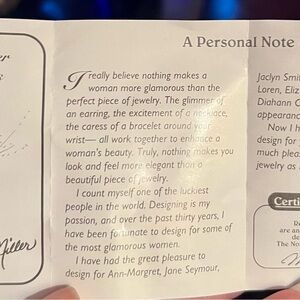 er
A Personal Note
I really believe nothing makes a
woman more glamorous than the
perfect piece of jewelry. The glimmer of
an earring, the excitement of a necklace,
the caress of a bracelet around your
wrist— all work together to enhance a
woman's beauty. Truly, nothing makes you
look and feel more elegant than a
beautiful piece of jewelry.
I count myself one of the luckiest
people in the world. Designing is my
passion, and over the past thirty years, I
have been fortunate to design for some of
the most glamorous women.
I have had the great pleasure to
design for Ann-Margret, Jane Seymour,
Jaclyn Smi
Loren, Eliz
Diahann C
appearanc
Now I h
design for
much plea
jewelry as
Miller
Certi
Re
are an
de
The No